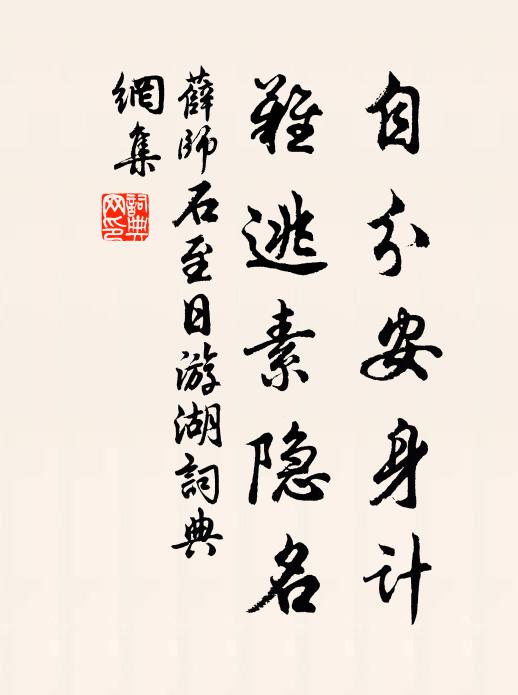 自分安身计
难逃素隐名
薛師石至日游湖詞典
網集
詞典
网印